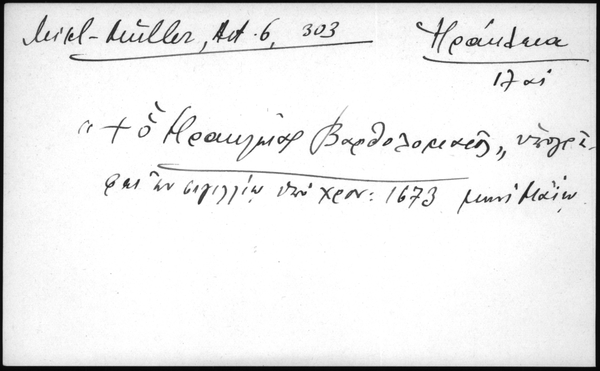 Mikl-Müller, Act. 6, 303
Ἡράκλεια
17 αἰ
"+ ὁ Ἡρακλείας Βαρθολομαῖος,, ὑπογρά-
φει ἐν σιγιλλίῳ ὑπὸ χρον: 1673 μηνὶ Μαΐῳ